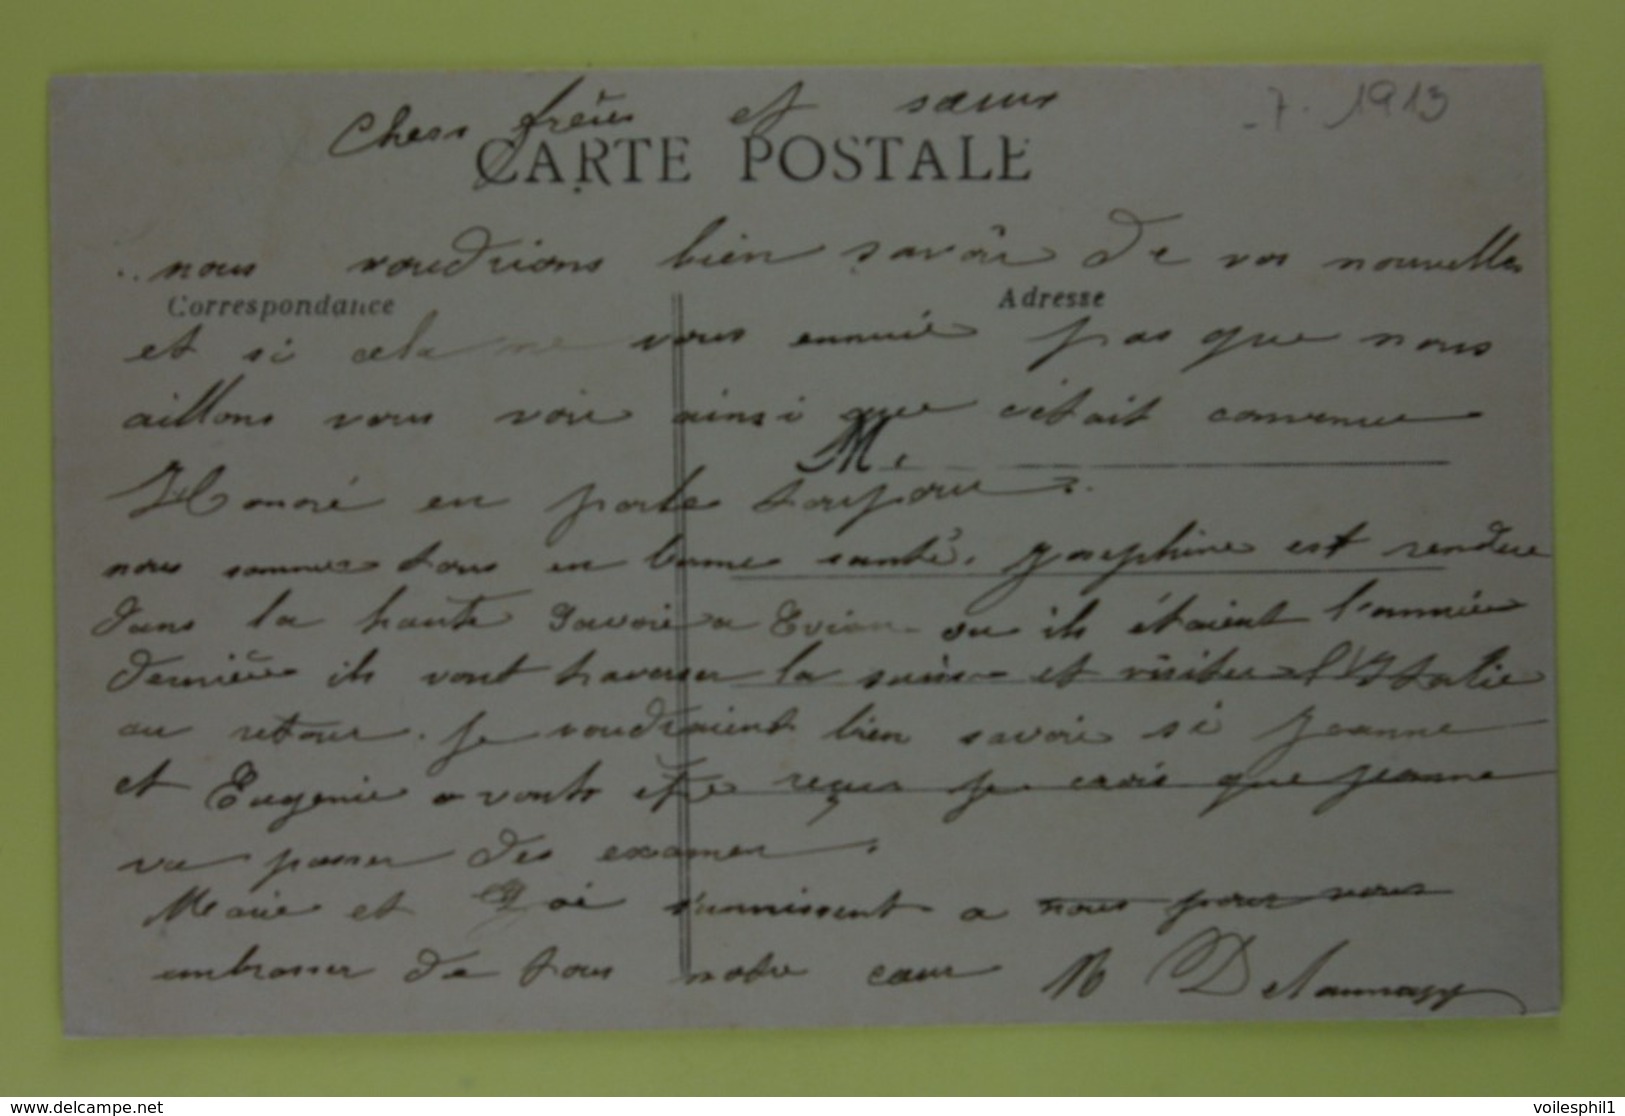 - 7 - 1913
Chers frères et sœurs
CARTE POSTALE
nous voudrions bien savoir de vos nouvelles
Correspondance
Adresse
et si cela ne vous ennuie pas que nous
aillons vous voir ainsi que c'était convenue
M.
Honoré en parle toujours.
nous sommes tous en bonne santé. Josephine est rendue
dans la haute Savoie a Evian ou ils étaient l'année
dernière ils vont traverser la suisse et visiter l'Italie
au retour. je voudraient bien savoir si Jeanne
et Eugenie avonts été reçus je crois que jeanne
va passer des examen.
Marie et s'unnissent a nous pour vous
embrasser de tous notre cœur M Delaunay
www.delcampe.net
voilesphil1